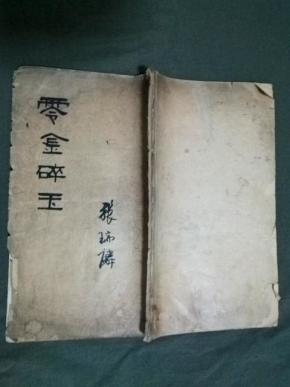 零金碎玉
張瑞麟